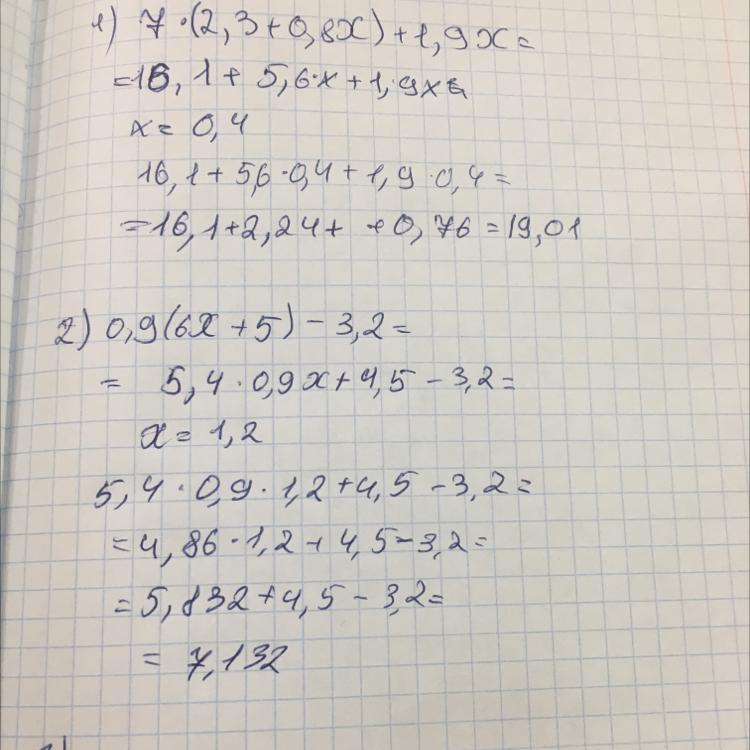 1) 7·(2,3+0,8x)+1,9x=
=16,1+5,6·x+1,9x=
x=0,4
16,1+5,6·0,4+1,9·0,4=
=16,1+2,24+ +0,76=19,01
2) 0,9(6x+5)-3,2=
= 5,4·0,9x+4,5-3,2=
x=1,2
5,4·0,9·1,2+4,5-3,2=
=4,86·1,2+4,5-3,2=
=5,832+4,5-3,2=
=7,132